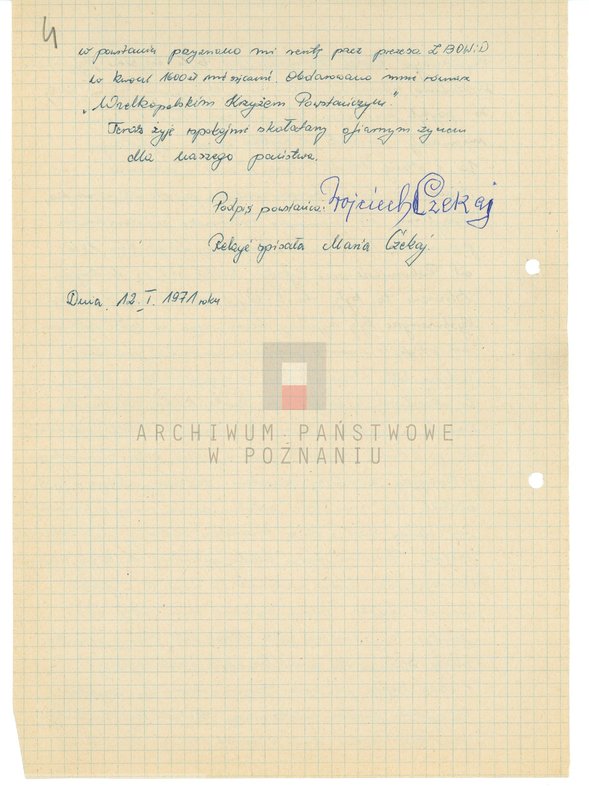 4
w powstaniu przyznano mi rentę przez prezesa ZBOWiD
w kwocie 1600 zł miesięcznie. Obdarowano mnie również
„Wielkopolskim Krzyżem Powstańczym"
Teraz żyję spokojnie skołatany ofiarnym życiem
dla naszego państwa.
Podpis powstańca: Wojciech Czekaj
Relację spisała Maria Czekaj.
Dnia 12. I. 1971 roku
ARCHIWUM PAŃSTWOWE
W POZNANIU